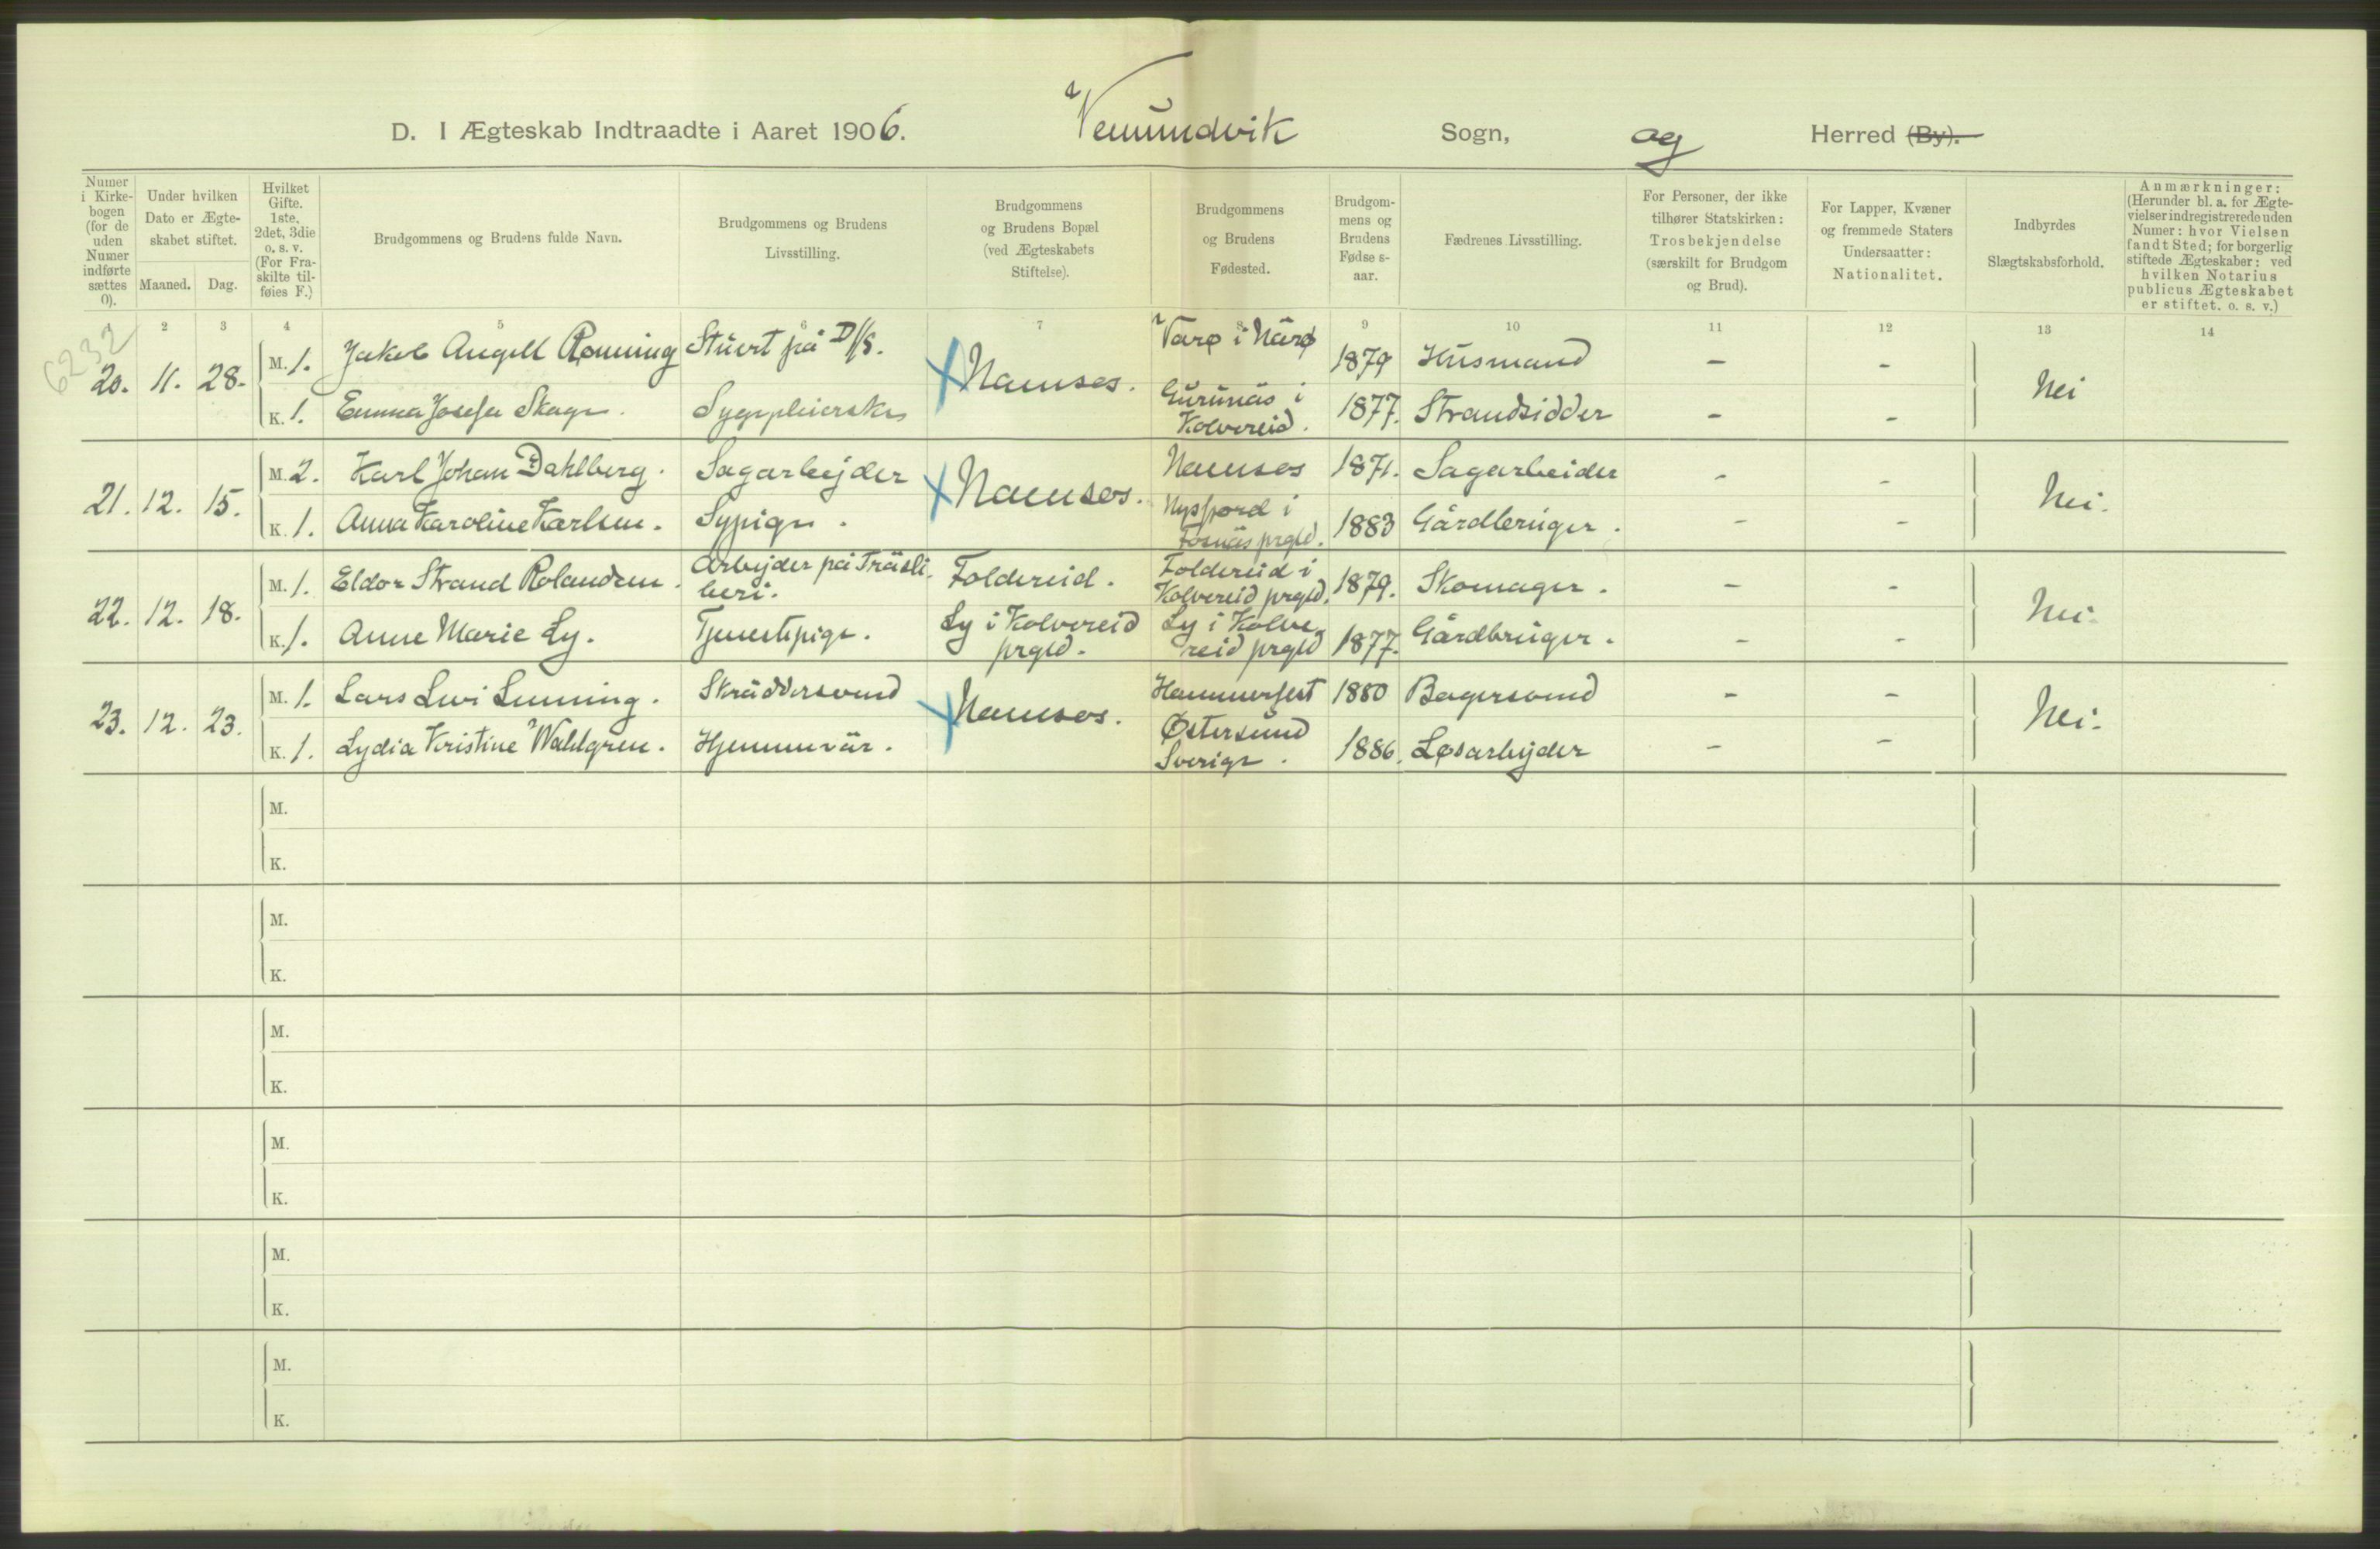 D. I Ægteskab Indtraadte i Aaret 1906. Vemundvik Sogn, og Herred (By).
Numer i Kirkebogen (for de uden Numer indførte sættes 0).
Under hvilken Dato er Ægteskabet stiftet.
Maaned. Dag.
Hvilket Gifte. 1ste, 2det, 3die o. s. v. (For Fraskilte tilføies F.)
Brudgommens og Brudens fulde Navn.
Brudgommens og Brudens Livsstilling.
Brudgommens og Brudens Bopæl (ved Ægteskabets Stiftelse).
Brudgommens og Brudens Fødested.
Brudgommens og Brudens Fødselsaar.
Fædrenes Livsstilling.
For Personer, der ikke tilhører Statskirken: Trosbekjendelse (særskilt for Brudgom og Brud).
For Lapper, Kvæner og fremmede Staters Undersaatter: Nationalitet.
Indbyrdes Slægtskabsforhold.
Anmærkninger: (Herunder bl. a. for Ægtevielser indregistrerede uden Numer: hvor Vielsen fandt Sted; for borgerlig stiftede Ægteskaber: ved hvilken Notarius publicus Ægteskabet er stiftet. o. s. v.)
1 2 3 4 5 6 7 8 9 10 11 12 13 14
6232
20. 11. 28. M. 1. Jakob Angell Rønning Stuert på D/S. Namsos. Varø i Nærø 1879 Husmand - - Nei
K. 1. Emma Josefa Skage. Sygepleierske Gurunäs i Kolvereid. 1877. Strandsidder - -
21. 12. 15. M. 2. Karl Johan Dahlberg. Sagarbejder Namsos. Namsos 1871. Sagarbeider - - Nei.
K. 1. Anna Karoline Karlsen. Sypige. i Fosnäs prgld. 1883 Gårdbruger. - -
22. 12. 18. M. 1. Eldor Strand Rolandsen. Arbejder på Träsliberi. Foldereid. Foldereid i Kolvereid prgld. 1879. Skomager. - - Nei.
K. 1. Anne Marie Ly. Tjenestepige. Ly i Kolvereid prgld. Ly i Kolvereid prgld 1877. Gårdbruger. - -
23. 12. 23. M. 1. Lars Levi Lenning. Skräddersvend Namsos. Hammerfest 1880 Bagersvend - - Nei.
K. 1. Lydia Kristine Wahlgren. Hjemmevär. Østersund Sverige. 1886. Løsarbejder - -
M.
K.
M.
K.
M.
K.
M.
K.
M.
K.
M.
K.